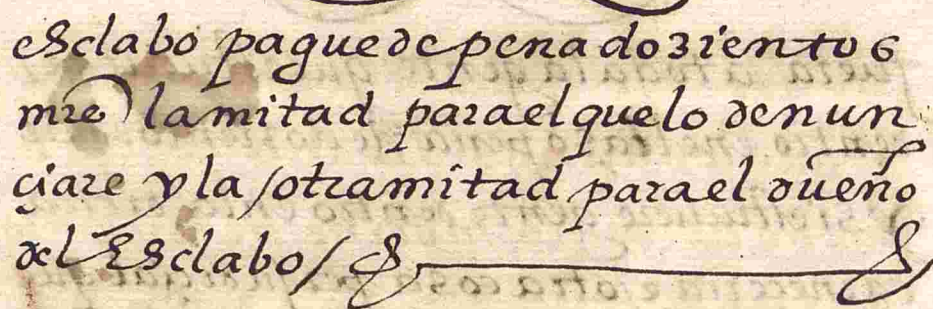 esclabo pague de pena dozientos
mrs la mitad para el que lo denun
çiare y la / otra mitad para el dueño
del Esclabo /